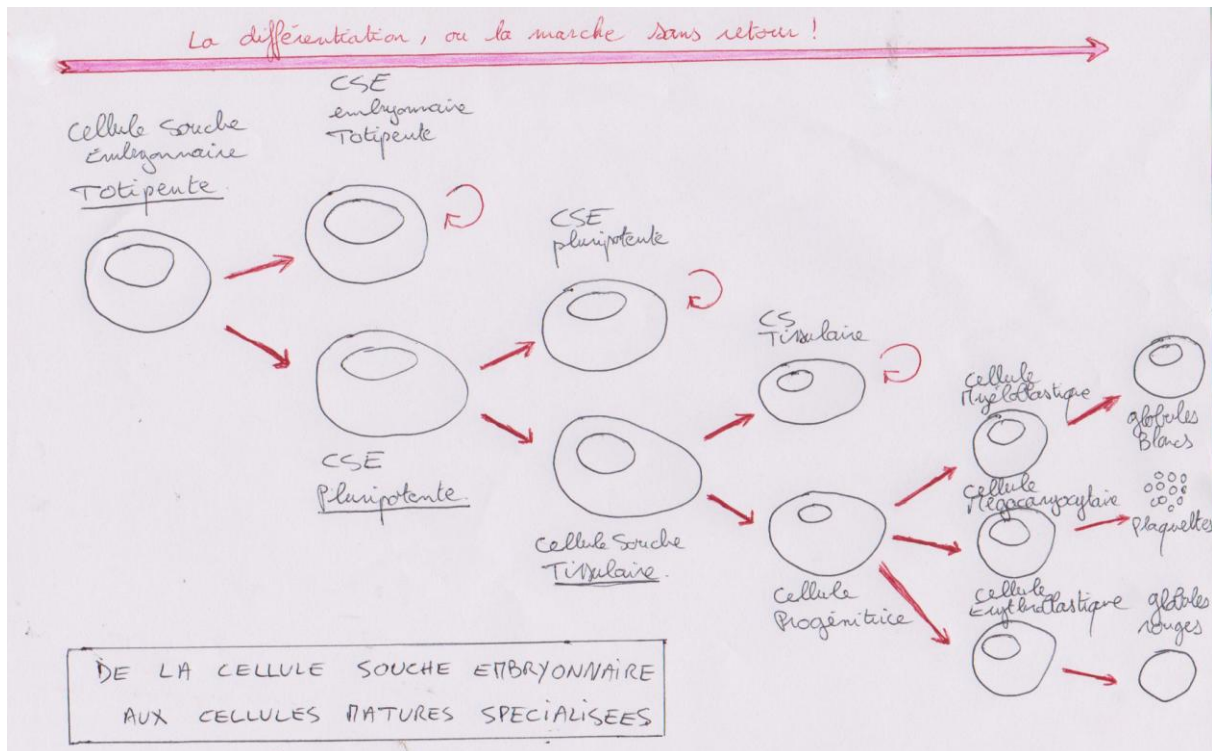 La différentiation, ou la marche sans retour !
Cellule Souche
Embryonnaire
Totipente
CSE
embryonnaire
Totipente
CSE
pluripotente
CSE
Pluripotente
CS
Tissulaire
Cellule Souche
Tissulaire
Cellule
Progénitrice
Cellule
Myéloblastique
globules
Blancs
Cellule
Mégacaryocytaire
Plaquettes
Cellule
Erythroblastique
globules
rouges
DE LA CELLULE SOUCHE EMBRYONNAIRE
AUX CELLULES MATURES SPECIALISEES